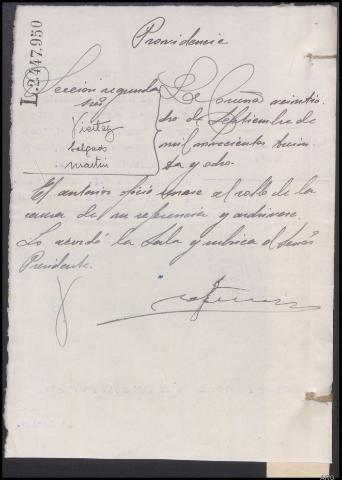 L.2447.950
Providencia
Sección segunda
Srs
Vieitez
Salgado
Martin
La Coruña veintio
cho de Septiembre de
mil novecientos trein
ta y ocho.
El anterior oficio únase al rollo de la
causa de su referencia y archívese.
Lo acordó la Sala y rubrica el Señor
Presidente.